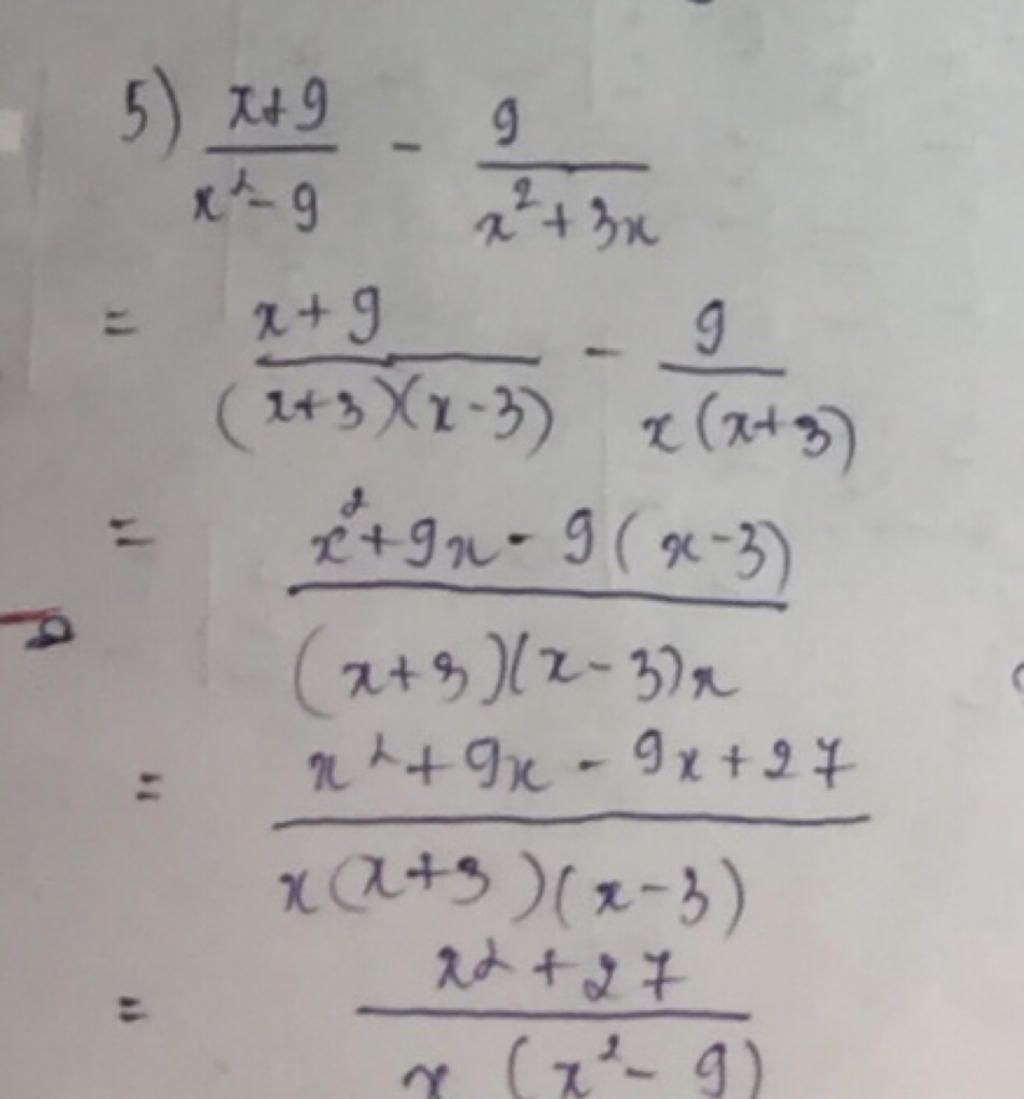 5) x+9/x²-9 - 9/x²+3x
= x+9/(x+3)(x-3) - 9/x(x+3)
= x²+9x - 9(x-3)/(x+3)(x-3)x
= x²+9x - 9x+27/x(x+3)(x-3)
= x²+27/x(x²-9)